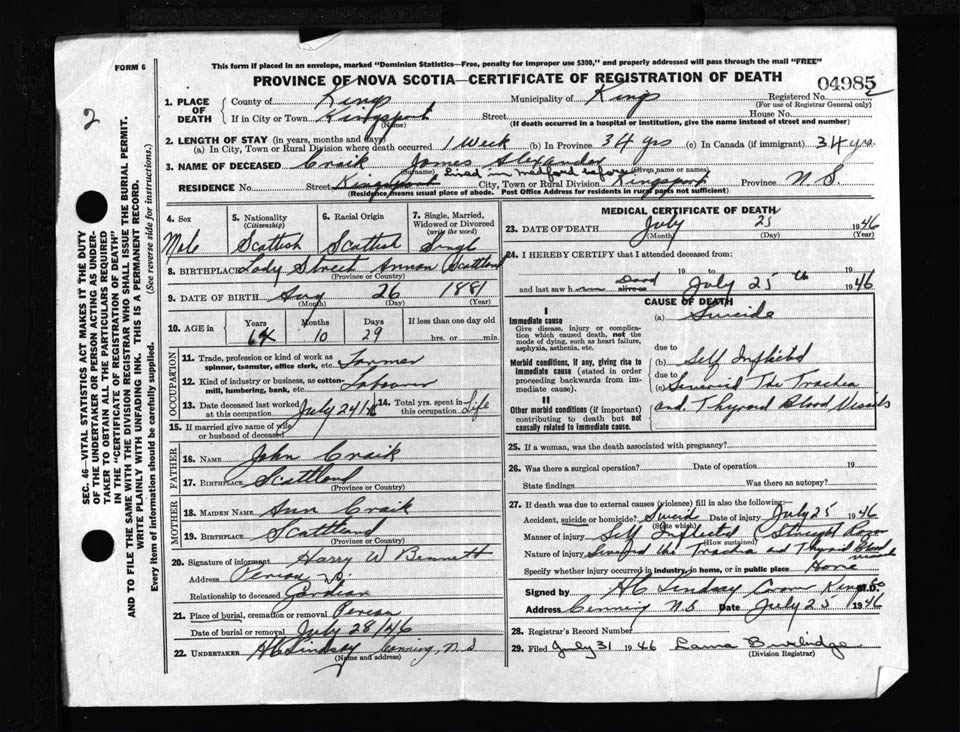 FORM 6
This form if placed in an envelope, marked "Dominion Statistics—Free, penalty for improper use $300," and properly addressed will pass through the mail "FREE"
PROVINCE OF NOVA SCOTIA—CERTIFICATE OF REGISTRATION OF DEATH
04985
2
SEC. 46—VITAL STATISTICS ACT MAKES IT THE DUTY
OF THE UNDERTAKER OR PERSON ACTING AS UNDER-
TAKER TO OBTAIN ALL THE PARTICULARS REQUIRED
IN THE "CERTIFICATE OF REGISTRATION OF DEATH"
AND TO FILE THE SAME WITH THE DIVISION REGISTRAR WHO SHALL ISSUE THE BURIAL PERMIT.
WRITE PLAINLY WITH UNFADING INK. THIS IS A PERMANENT RECORD.
Every item of information should be carefully supplied. (See reverse side for instructions.)
1. PLACE OF DEATH
County of Kings Municipality of Kings Registered No.
(For use of Registrar General only)
If in City or Town Kingsport Street House No.
(Name) (If death occurred in a hospital or institution, give the name instead of street and number)
2. LENGTH OF STAY (in years, months and days)
(a) In City, Town or Rural Division where death occurred 1 Week (b) In Province 34 yrs (c) In Canada (if immigrant) 34 yrs.
3. NAME OF DECEASED Craik James Alexander
(Surname) Lived in Medford before (Given name or names)
RESIDENCE No. Street Kingsport City, Town or Rural Division Kingsport Province N.S.
(Residence means usual place of abode. Post Office Address for residents in rural parts not sufficient)
4. Sex Male
5. Nationality (Citizenship) Scottish
6. Racial Origin Scottish
7. Single, Married, Widowed or Divorced (write the word) Singl
8. BIRTHPLACE Lady Street Annan Scottland
(Province or Country)
9. DATE OF BIRTH Aug 26 1881
(Month) (Day) (Year)
10. AGE in Years 64 Months 10 Days 29 If less than one day old hrs. or min.
OCCUPATION
11. Trade, profession or kind of work as spinner, teamster, office clerk, etc. Farmer
12. Kind of industry or business, as cotton mill, lumbering, bank, etc. Labourer
13. Date deceased last worked at this occupation July 24/46 14. Total yrs. spent in this occupation Life
15. If married give name of wife or husband of deceased
FATHER
16. NAME John Craik
17. BIRTHPLACE Scottland
(Province or Country)
MOTHER
18. MAIDEN NAME Ann Craik
19. BIRTHPLACE Scottland
(Province or Country)
20. Signature of informant Harry W Bennett
Address
Relationship to deceased Gardian
21. Place of burial, cremation or removal
Date of burial or removal July 28/46
22. UNDERTAKER HC Lindsay Canning, N.S.
(Name and address)
MEDICAL CERTIFICATE OF DEATH
23. DATE OF DEATH July 25 1946
(Month) (Day) (Year)
24. I HEREBY CERTIFY that I attended deceased from:
19 to 19
and last saw h alive on Dead July 25th 1946
CAUSE OF DEATH
I
Immediate cause
Give disease, injury or complication which caused death, not the mode of dying, such as heart failure, asphyxia, asthenia, etc.
(a) Suicide
due to
Morbid conditions, if any, giving rise to immediate cause (stated in order proceeding backwards from immediate cause).
(b) Self Inflicted
due to
(c) Severed The Trachea
and Thyroid Blood Vessels
II
Other morbid conditions (if important) contributing to death but not causally related to immediate cause.
25. If a woman, was the death associated with pregnancy?
26. Was there a surgical operation? Date of operation 19
State findings Was there an autopsy?
27. If death was due to external causes (violence) fill in also the following:—
Accident, suicide or homicide? Suicid Date of injury July 25 1946
(State which)
Manner of injury Self Inflicted Straight Razor
(How sustained)
Nature of injury Severed the Trachea and Thyroid Blood vessels
Specify whether injury occurred in industry, in home, or in public place Home
Signed by HC Lindsay Coroner Kings Co M.D.
Address Canning N.S Date July 25 1946
28. Registrar's Record Number
29. Filed July 31 1946 Laura Burbidge
(Division Registrar)